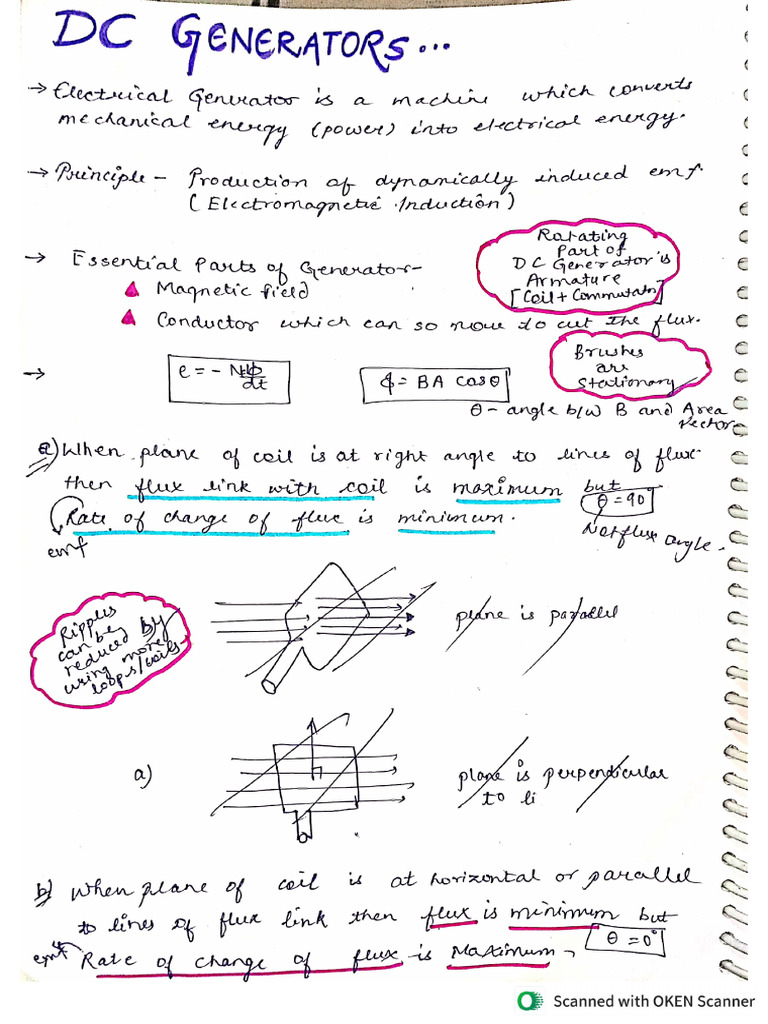 DC GENERATORS...
→ Electrical Generator is a machine which converts
mechanical energy (power) into electrical energy.
→ Principle - Production of dynamically induced emf.
(Electromagnetic Induction)
→ Essential Parts of Generator-
Magnetic field
Conductor which can so move to cut the flux.
Rotating
Part of
DC Generator is
Armature
[Coil + Commutator]
→ e = - N dϕ/dt
ϕ = BA cosθ
Brushes
are
Stationary
θ - angle b/w B and Area
vector
a) When plane of coil is at right angle to lines of flux
then flux link with coil is maximum but
Rate of change of flux is minimum.
emf
θ = 90°
Not flux angle.
Ripples
can be
reduced by
using more
loops/coils
plane is parallel
a)
plane is perpendicular
to li
b) When plane of coil is at horizontal or parallel
to lines of flux link then flux is minimum but
emf Rate of change of flux is Maximum.
θ = 0°
Scanned with OKEN Scanner